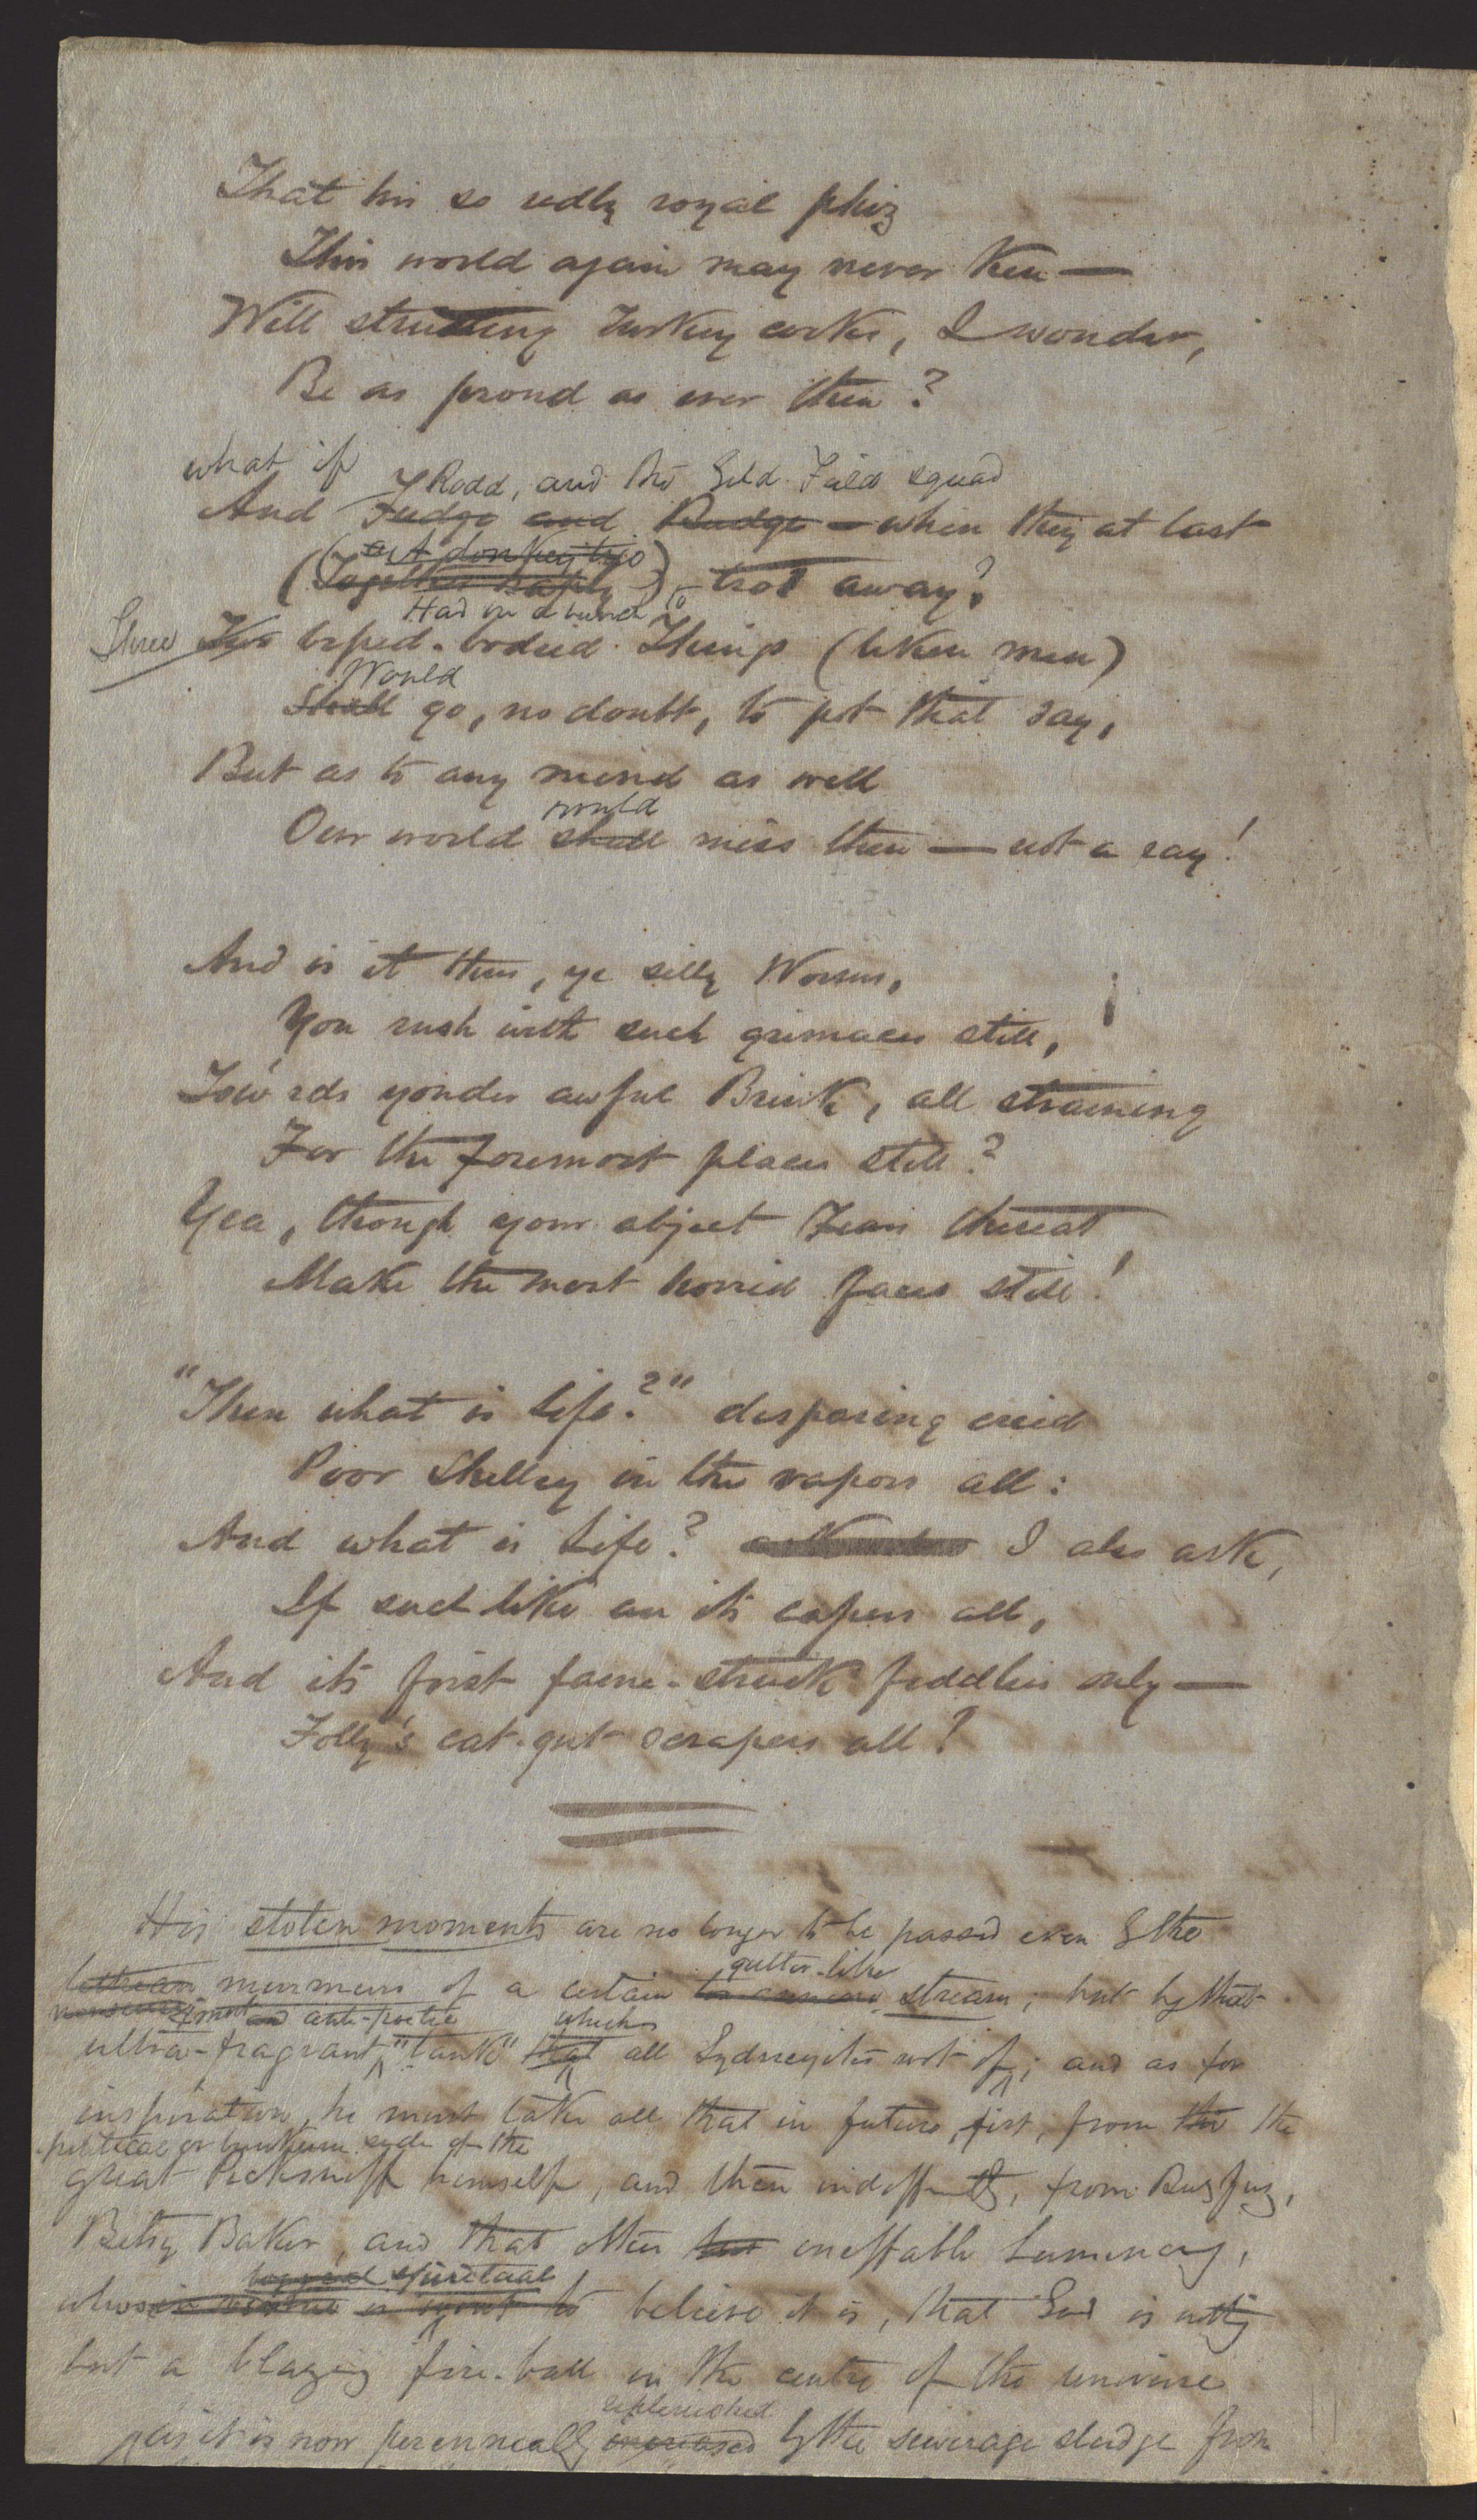 That his so redly royal phiz
This world again may never ken —
Will strutting Turkey cocks, I wonder,
Be as proud as ever then?
what if Rodd, and the Gold Field squad
And Fudge and Rudge — when they at last
at A donkey trio
(Together haply) trot away?
Had on a
Three Two biped-bodied Things (liken men)
Would
Shall go, no doubt, to pot that day,
But as to any mind as well
would
Our world shall miss then — not a ray!
And is it thus, ye silly Worms,
You rush with such grimaces still,
Tow'rds yonder awful Brink, all straining
For the foremost places still?
Yea, though your abject Fears thereat
Make the most horrid faces still!
"Then what is Life?" desparing cried
Poor Shelley in the vapors all:
And what is Life? I also ask,
If such like are its capers all,
And its first fame-struck fiddlers only —
Folly's cat-gut scrapers all?
His stolen moments are no longer to be passed even by the
gutter-like
murmurs of a certain stream; but by that
most and anti-poetic which
ultra-fragrant "tank" that all Sydneyites wot of; and as for
inspiration, he must take all that in future, first, from the the
political or bunkum side of the
great Pecksniff himself, and then indifftly, from Buzfuz,
Betsy Baker, and that other ineffable Luminary,
spiritual
whose to believe it is, that God is nothing
but a blazing fire-ball in the centre of the universe
replenished
as it is now perenneally increased by the sewerage sludge from